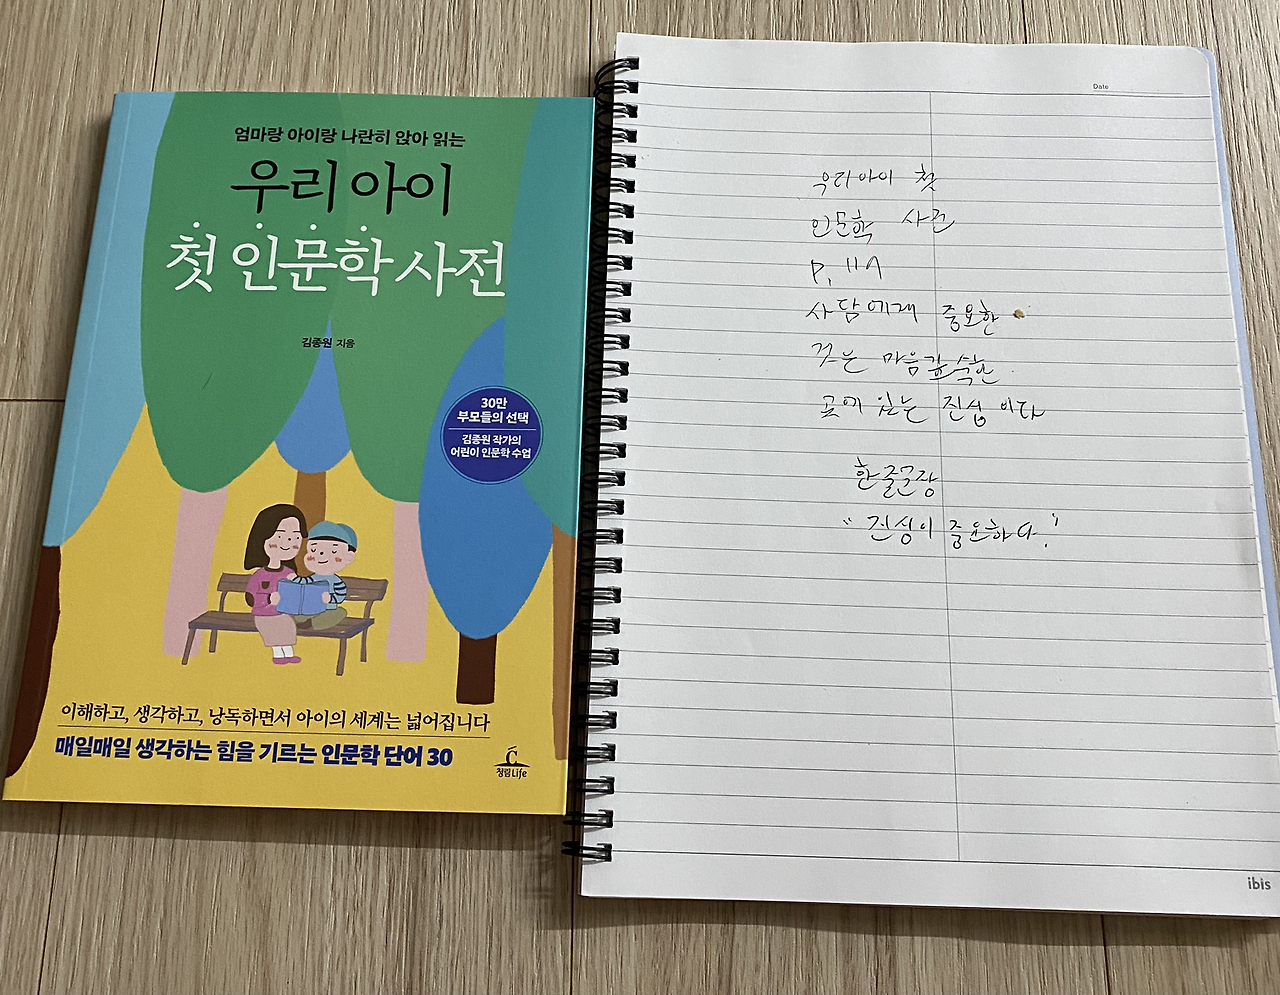 엄마랑 아이랑 나란히 앉아 읽는
우리 아이
첫 인문학 사전
김종원 지음
30만
부모들의 선택
김종원 작가의
어린이 인문학 수업
이해하고, 생각하고, 낭독하면서 아이의 세계는 넓어집니다
매일매일 생각하는 힘을 기르는 인문학 단어 30
청림Life
Date
우리아이 첫
인문학 사전
P.
사람에게 중요한
것은 마음깊숙한
곳에 있는 진심이다
한줄문장
"진심이 중요하다."
ibis